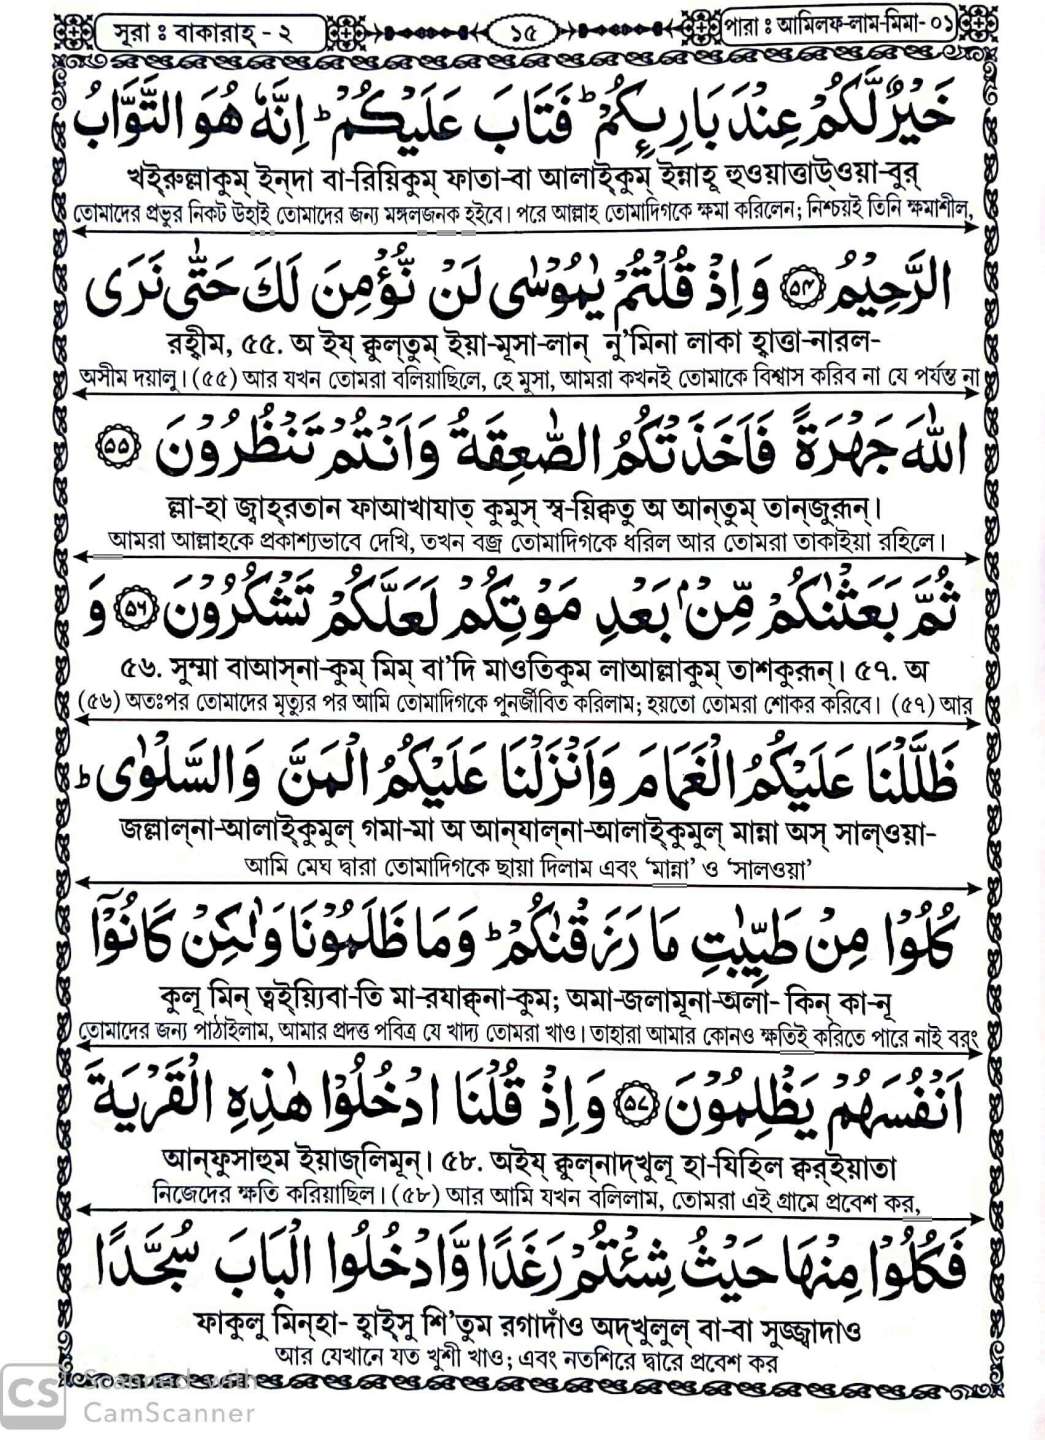 সূরা ঃ বাকারাহ্ - ২
১৫
পারা ঃ আমিলফ-লাম-মিমা- ০১
خَيْرٌ لَّكُمْ عِنْدَ بَارِئِكُمْ ؕ فَتَابَ عَلَيْكُمْ ؕ اِنَّهٗ هُوَ التَّوَّابُ
খইরুল্লাকুম্ ইন্‌দা বা-রিয়িকুম্ ফাতা-বা আলাইকুম্ ইন্নাহূ হুওয়াত্তাউওয়া-বুর্
তোমাদের প্রভুর নিকট উহাই তোমাদের জন্য মঙ্গলজনক হইবে। পরে আল্লাহ তোমাদিগকে ক্ষমা করিলেন; নিশ্চয়ই তিনি ক্ষমাশীল,
الرَّحِيْمُ ۝۵۴ وَاِذْ قُلْتُمْ يٰمُوْسٰى لَنْ نُّؤْمِنَ لَكَ حَتّٰى نَرَى
রহীম, ৫৫. অ ইয্ কুল্‌তুম্ ইয়া-মূসা-লান্ নু'মিনা লাকা হাত্তা-নারল-
অসীম দয়ালু। (৫৫) আর যখন তোমরা বলিয়াছিলে, হে মুসা, আমরা কখনই তোমাকে বিশ্বাস করিব না যে পর্যন্ত না
اللّٰهَ جَهْرَةً فَاَخَذَتْكُمُ الصّٰعِقَةُ وَاَنْتُمْ تَنْظُرُوْنَ ۝۵۵
ল্লা-হা জ্বাহ্‌রতান ফাআখাযাত্ কুমুস্ স্ব-য়িক্বতু অ আন্‌তুম্ তান্‌জুরূন্।
আমরা আল্লাহকে প্রকাশ্যভাবে দেখি, তখন বজ্র তোমাদিগকে ধরিল আর তোমরা তাকাইয়া রহিলে।
ثُمَّ بَعَثْنٰكُمْ مِّنْۢ بَعْدِ مَوْتِكُمْ لَعَلَّكُمْ تَشْكُرُوْنَ ۝۵۶ وَ
৫৬. সুম্মা বাআস্‌না-কুম্ মিম্ বা'দি মাওতিকুম লাআল্লাকুম্ তাশকুরূন্। ৫৭. অ
(৫৬) অতঃপর তোমাদের মৃত্যুর পর আমি তোমাদিগকে পুনর্জীবিত করিলাম; হয়তো তোমরা শোকর করিবে। (৫৭) আর
ظَلَّلْنَا عَلَيْكُمُ الْغَمَامَ وَاَنْزَلْنَا عَلَيْكُمُ الْمَنَّ وَالسَّلْوٰى ؕ
জল্লাল্‌না-আলাইকুমুল্ গমা-মা অ আন্‌যাল্‌না-আলাইকুমুল্ মান্না অস্ সাল্‌ওয়া-
আমি মেঘ দ্বারা তোমাদিগকে ছায়া দিলাম এবং ‘মান্না’ ও ‘সালওয়া’
كُلُوْا مِنْ طَيِّبٰتِ مَا رَزَقْنٰكُمْ ؕ وَمَا ظَلَمُوْنَا وَلٰكِنْ كَانُوْٓا
কুলূ মিন্ ত্বইয়্যিবা-তি মা-রযাক্বনা-কুম; অমা-জলামূনা-অলা- কিন্ কা-নূ
তোমাদের জন্য পাঠাইলাম, আমার প্রদত্ত পবিত্র যে খাদ্য তোমরা খাও। তাহারা আমার কোনও ক্ষতিই করিতে পারে নাই বরং
اَنْفُسَهُمْ يَظْلِمُوْنَ ۝۵۷ وَاِذْ قُلْنَا ادْخُلُوْا هٰذِهِ الْقَرْيَةَ
আন্‌ফুসাহুম ইয়াজ্‌লিমূন্। ৫৮. অইয্ কুল্‌নাদ্‌খুলূ হা-যিহিল ক্বর্‌ইয়াতা
নিজেদের ক্ষতি করিয়াছিল। (৫৮) আর আমি যখন বলিলাম, তোমরা এই গ্রামে প্রবেশ কর,
فَكُلُوْا مِنْهَا حَيْثُ شِئْتُمْ رَغَدًا وَّادْخُلُوا الْبَابَ سُجَّدًا
ফাকুলু মিন্‌হা- হাইসু শি'তুম রগাদাঁও অদ্‌খুলুল্ বা-বা সুজ্জাদাও
আর যেখানে যত খুশী খাও; এবং নতশিরে দ্বারে প্রবেশ কর
CS Scanned with
CamScanner